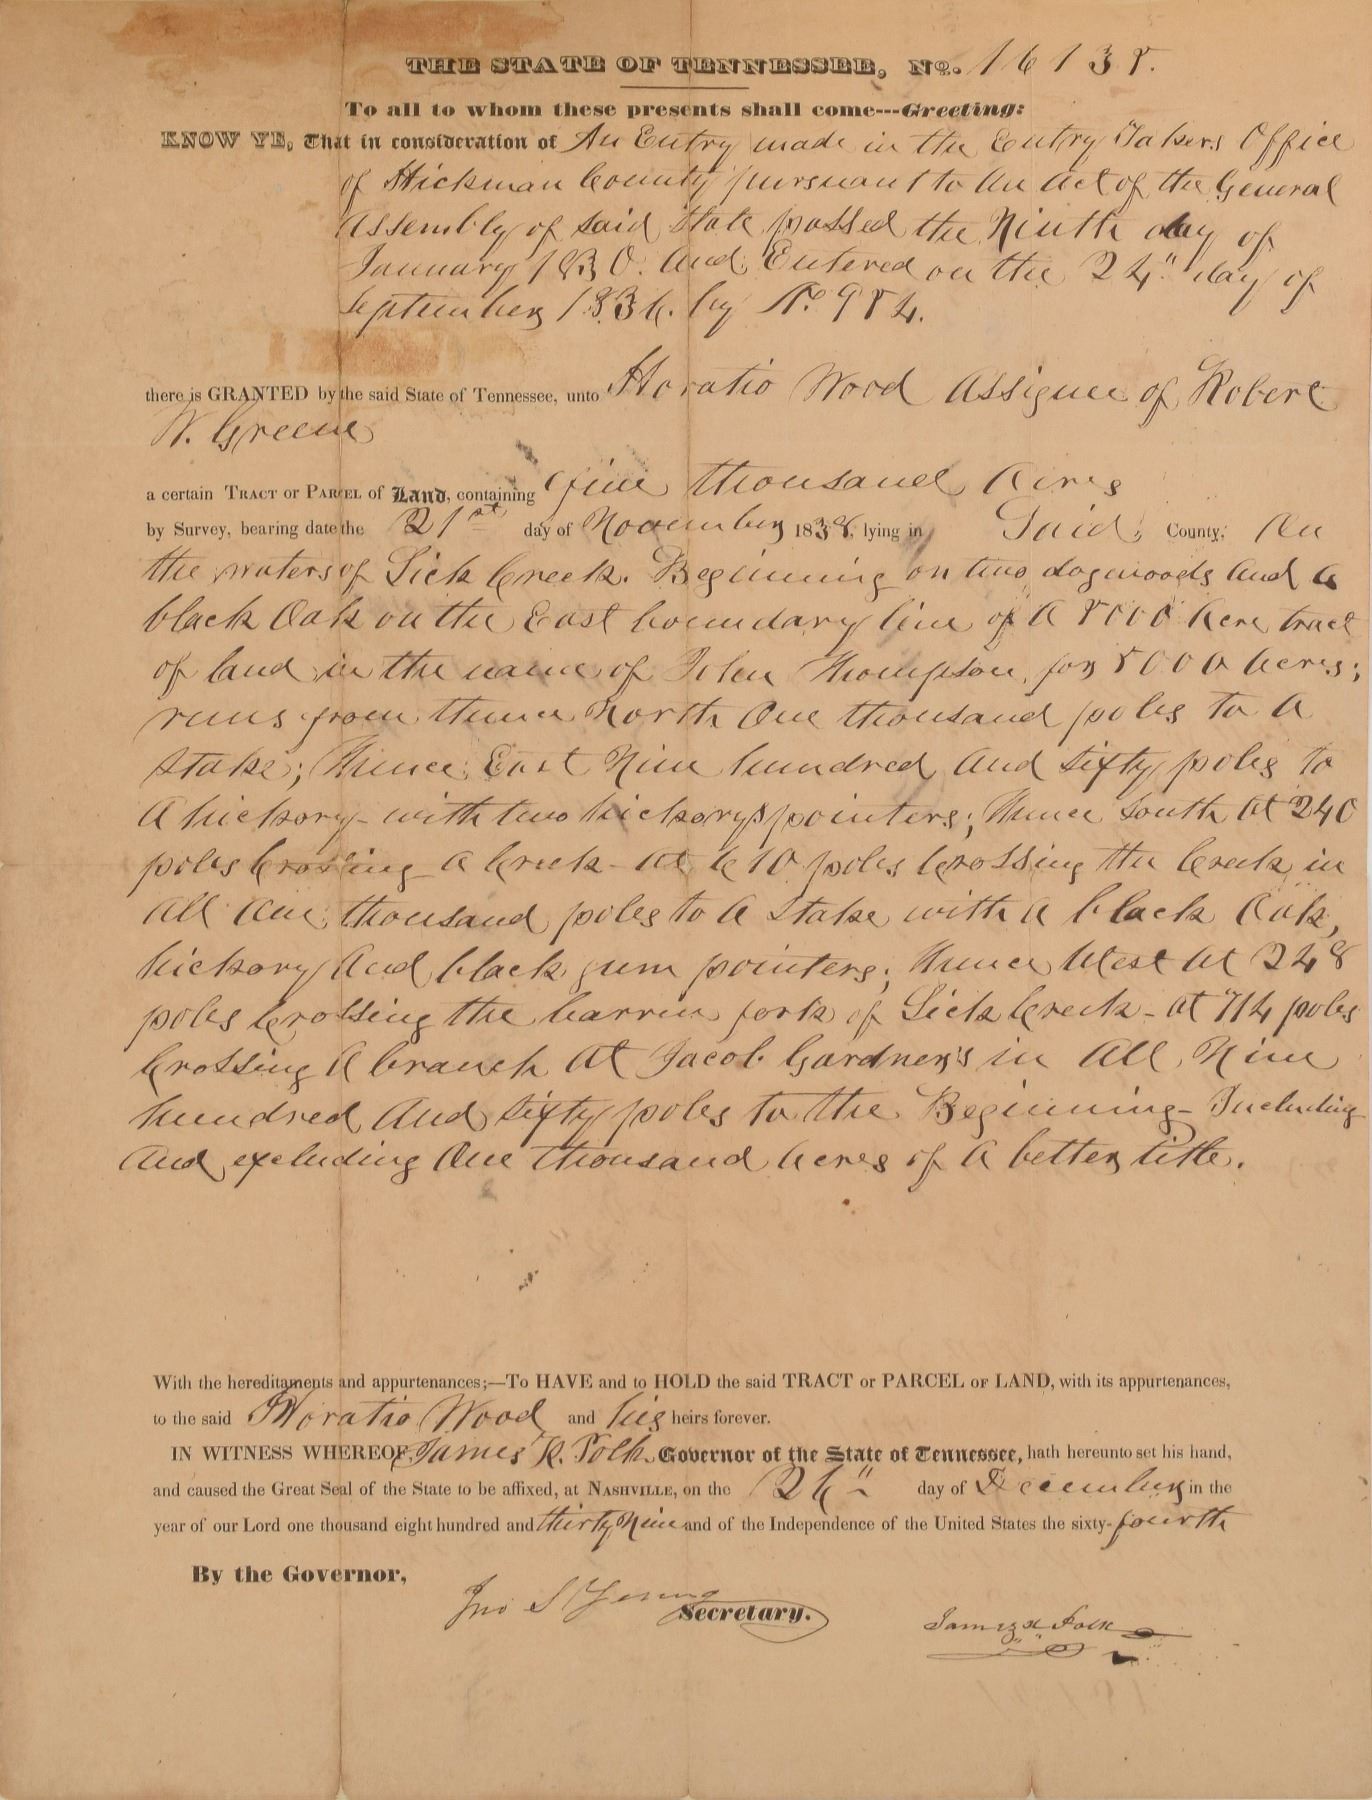 THE STATE OF TENNESSEE, No. 16138.
To all to whom these presents shall come---Greeting:
KNOW YE, That in consideration of An Entry made in the Entry Takers Office
of Hickman County pursuant to An Act of the General
Assembly of said State passed the Ninth day of
January 1830. And Entered on the 24" day of
September 1836. by No. 984.
there is GRANTED by the said State of Tennessee, unto Horatio Wood Assignee of Robert
W. Greene
a certain TRACT or PARCEL of Land, containing five thousand Acres
by Survey, bearing date the 21st day of November 1838, lying in Said County, On
the waters of Lick Creek. Beginning on two dogwoods And A
black Oak on the East boundary line of A 8000 Acre tract
of land in the name of John Thompson, for 8000 Acres;
runs from thence North One thousand poles to A
Stake; Thence East Nine hundred And sixty poles to
A hickory - with two hickorys pointers; Thence South At 240
poles Crossing A Creek - At 610 poles Crossing the Creek in
All One thousand poles to A Stake with A black Oak,
hickory And black gum pointers; Thence West At 248
poles Crossing the barren fork of Lick Creek - At 714 poles
Crossing A branch At Jacob Gardner's in All Nine
hundred And sixty poles to the Beginning - Including
And excluding One thousand Acres of A better title.
With the hereditaments and appurtenances;—To HAVE and to HOLD the said TRACT or PARCEL OF LAND, with its appurtenances,
to the said Horatio Wood and his heirs forever.
IN WITNESS WHEREOF, James K. Polk Governor of the State of Tennessee, hath hereunto set his hand,
and caused the Great Seal of the State to be affixed, at NASHVILLE, on the 26" day of December in the
year of our Lord one thousand eight hundred and thirty Nine and of the Independence of the United States the sixty-fourth
By the Governor,
Jno S Young Secretary.
James K Polk